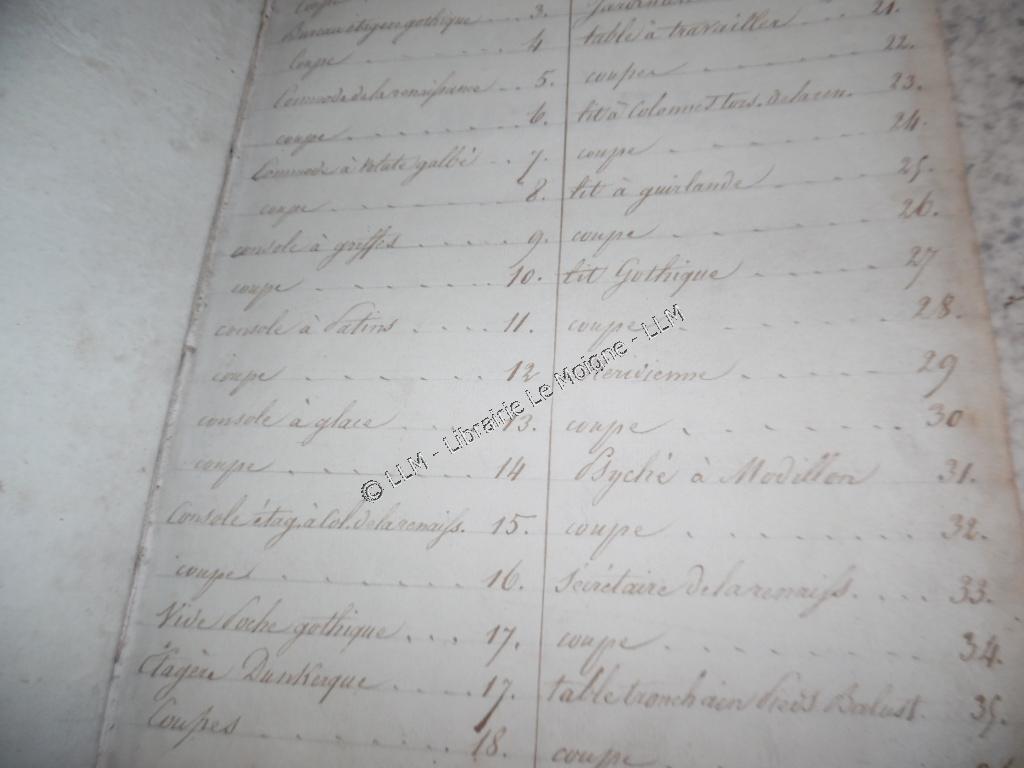 coupe
Bureau étagère gothique . . . 3.
Coupe . . . . 4
Commode de la renaissance . . 5.
coupe . . . . 6.
Commode à volute galbé . . 7.
coupe . . . . 8.
console à griffes . . . . 9.
coupe . . . . 10.
console à Patins . . . . 11.
coupe . . . . 12
console à glace . . . 13.
coupe . . . . 14
Console étag. à Col. de la renaiss. 15.
coupe . . . . 16.
Vide Poche gothique . . . 17.
Étagère Dunkerque . . . . 17.
Coupes . . . . 18.
Jardinière
table à travailler . . . 21.
coupes . . . . 22.
lit à Colonnes Tors. de la ren. 23.
coupe . . . . 24.
lit à guirlande . . . . 25.
coupe . . . . 26.
lit Gothique . . . . 27
coupe . . . . 28.
Meridienne . . . . 29
coupe . . . . 30
Psyché à Modillon 31.
coupe . . . . 32.
Secrétaire de la renaiss. . . . 33.
coupe . . . . 34.
table tronchain Pieds Balust. 35.
coupe
© LLM - Librairie Le Moigne - LLM